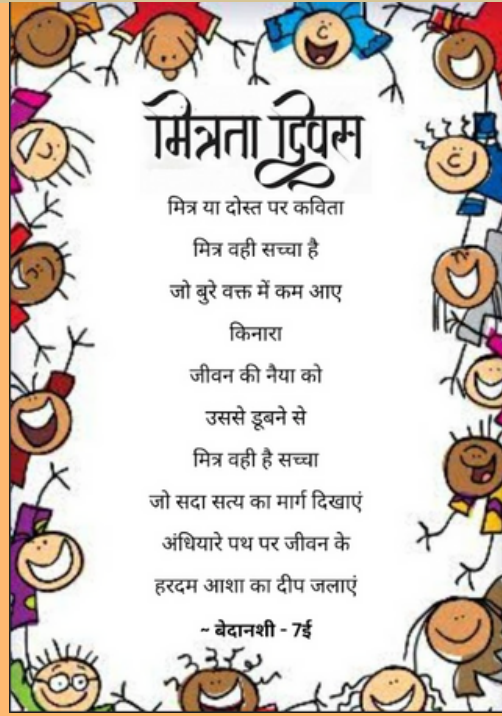 मित्रता दिवस
मित्र या दोस्त पर कविता
मित्र वही सच्चा है
जो बुरे वक्त में कम आए
किनारा
जीवन की नैया को
उससे डूबने से
मित्र वही है सच्चा
जो सदा सत्य का मार्ग दिखाएं
अंधियारे पथ पर जीवन के
हरदम आशा का दीप जलाएं
~ बेदानशी - 7ई